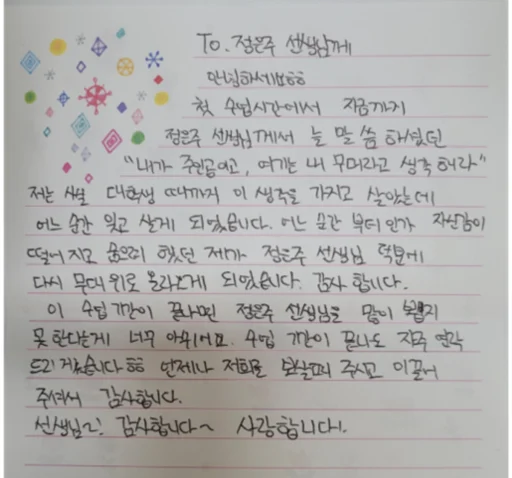 To. 정은주 선생님께
안녕하세요ㅎㅎ
첫 수업시간에서 지금까지
정은주 선생님께서 늘 말씀 하셨던
"내가 주인공이고, 여기는 내 무대라고 생각 해라"
저는 사실 대학생 때까지 이 생각을 가지고 살았는데
어느 순간 잊고 살게 되었습니다. 어느 순간 부터인가 자신감이
떨어지고 했던 제가 정은주 선생님 덕분에
다시 무대위로 올라오게 되었습니다. 감사 합니다.
이 수업 기간이 끝나면 정은주 선생님을 많이 뵙지
못 한다는게 너무 아쉬워요. 수업 기간이 끝나도 자주 연락
드리겠습니다ㅎㅎ 언제나 저희를 보살펴 주시고 이끌어
주셔서 감사합니다.
선생님~! 감사합니다~ 사랑합니다!.